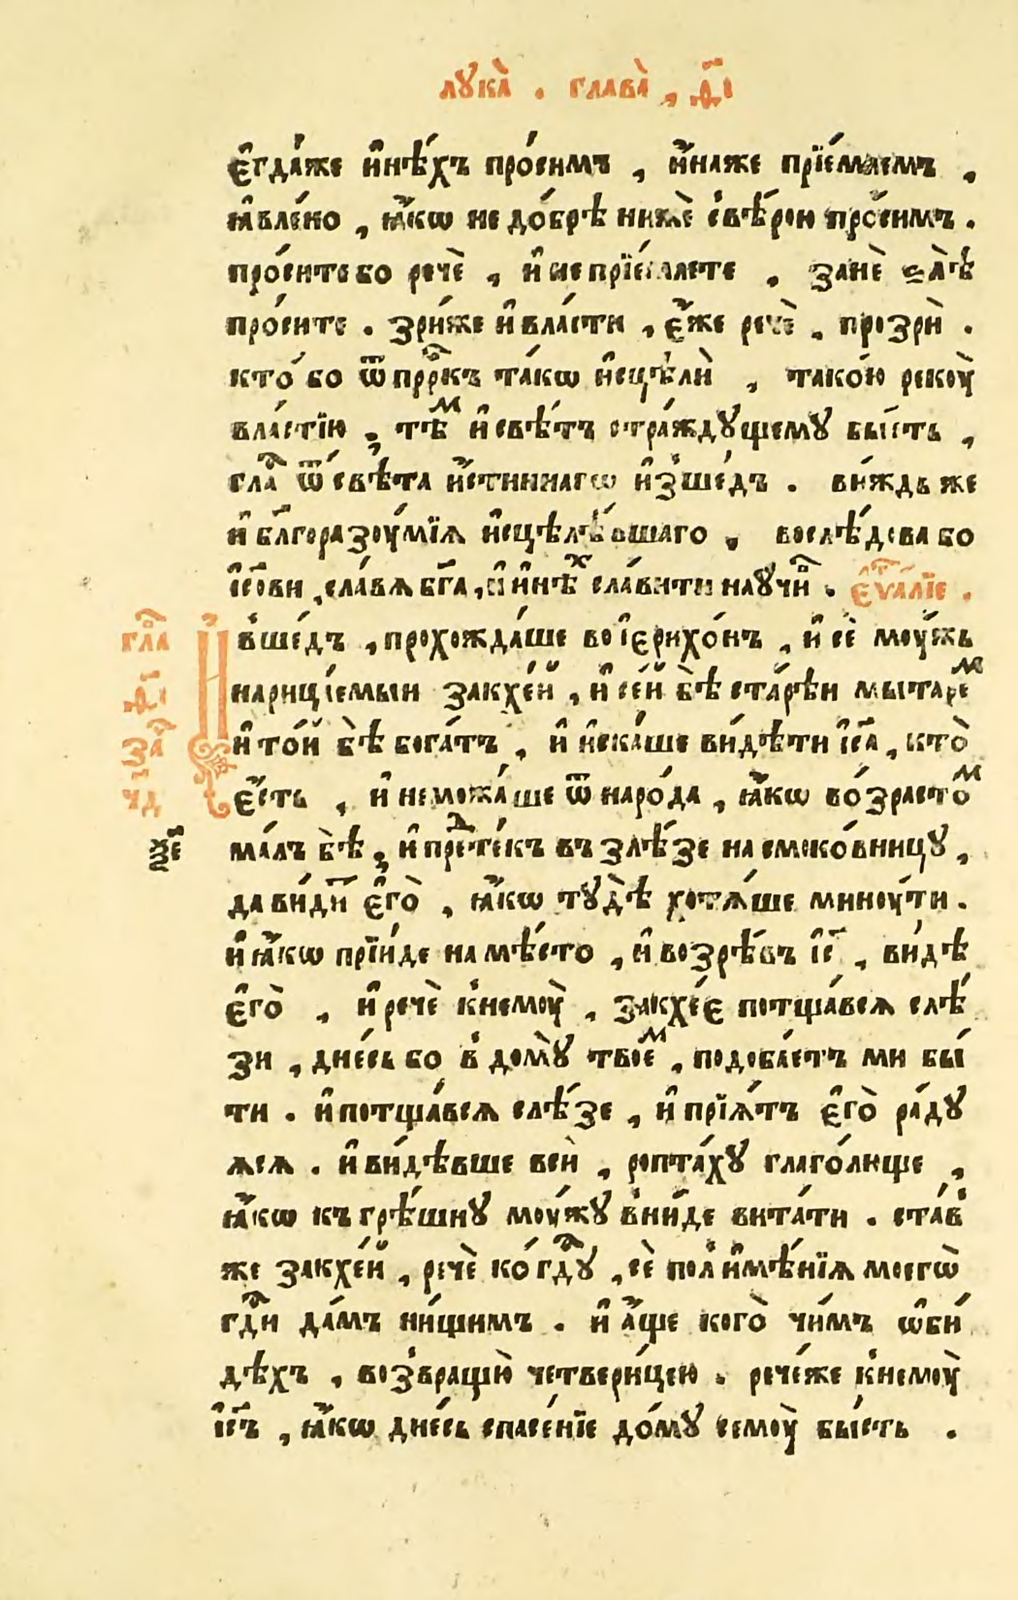 лѹка̀ . глава̀ , ѳ҃і
є҆гда́же и҆нѣ́хъ про́симъ , и҆́наже прїе́млемъ ,
ꙗ҆вле́но , ꙗ҆́кѡ не до́брѣ нижѐ свѣ́рою про́симъ .
про́ситебо речѐ , и҆ не прїе́млете , занѐ ѕлѣ̀
про́сите . зри́же и҆ вла́сти , є҆́же речѐ , прозрѝ .
кто́ бо ѿ прⷪ҇ркъ та́кѡ и҆сцѣлѝ , тако́ю рекоу̀
вла́стїю , тѣⷨ и҆ свѣ́тъ стра́ждꙋщемꙋ бы́сть ,
гл҃а ѿ свѣ́та и҆́стиннагѡ и҆зше́дъ . ви́ждь же
и҆ бл҃горазоу́мїѧ и҆сцѣлѣ́вшаго , вослѣ́дова бо
і҆с҃ови , сла́вѧ бг҃а , и҆ и҆нѣⷯ сла́вити наꙋчѝ . є҆ѵⷢ҇алїе .
гла
ѳ҃і
за
ч҃д
И҆ вше́дъ , прохожда́ше во і҆єрихо́нъ , и҆ сѐ моу́жь
нарица́емыи закхе́й , и҆ се́й бѣ̀ старѣ́и мытареⷨ
и҆ то́й бѣ̀ бога́тъ , и҆ и҆ска́ше ви́дѣти і҆с҃а , кто̀
є҆́сть , и҆ неможа́ше ѿ наро́да , ꙗ҆́кѡ во́зрастоⷨ
ма́лъ бѣ̀ , и҆ прⷣете́къ възлѣ́зе на смоко́вницꙋ ,
да ви́дитъ є҆го̀ , ꙗ҆́кѡ тꙋдѣ̀ хотѧ́ше миноу́ти .
и҆ ꙗ҆́кѡ прїи́де на мѣ́сто , и҆ возрѣ́въ і҆с҃ , видѣ
є҆го̀ , и҆ речѐ к̾немоу̀ , закхе́є потща́всѧ слѣ́
зи , дне́сь бо в̾ домꙋ̀ твоеⷨ , подоба́етъ ми бы́
ти . и҆ потща́всѧ слѣ́зе , и҆ прїѧ́тъ є҆го̀ ра́дꙋ
ѧсѧ . и҆ ви́дѣвше всѝ , ропта́хꙋ глаго́люще ,
ꙗ҆́кѡ къ грѣ́шнꙋ моу́жꙋ в̾ни́де вита́ти . ста́в̾
же закхе́й , речѐ ко́ гдⷭ҇ꙋ , сѐ пол̾ и҆мѣ́нїѧ моегѡ̀
гдⷭ҇и да́мъ ни́щимъ . и҆ а҆́ще кого̀ чи́мъ ѡ҆би́
дѣхъ , воз̾вращꙋ̀ четвери́цею . рече́же к̾немоу̀
і҆с҃ъ , ꙗ҆́кѡ дне́сь спасе́нїе до́мꙋ семоу̀ бы́сть .